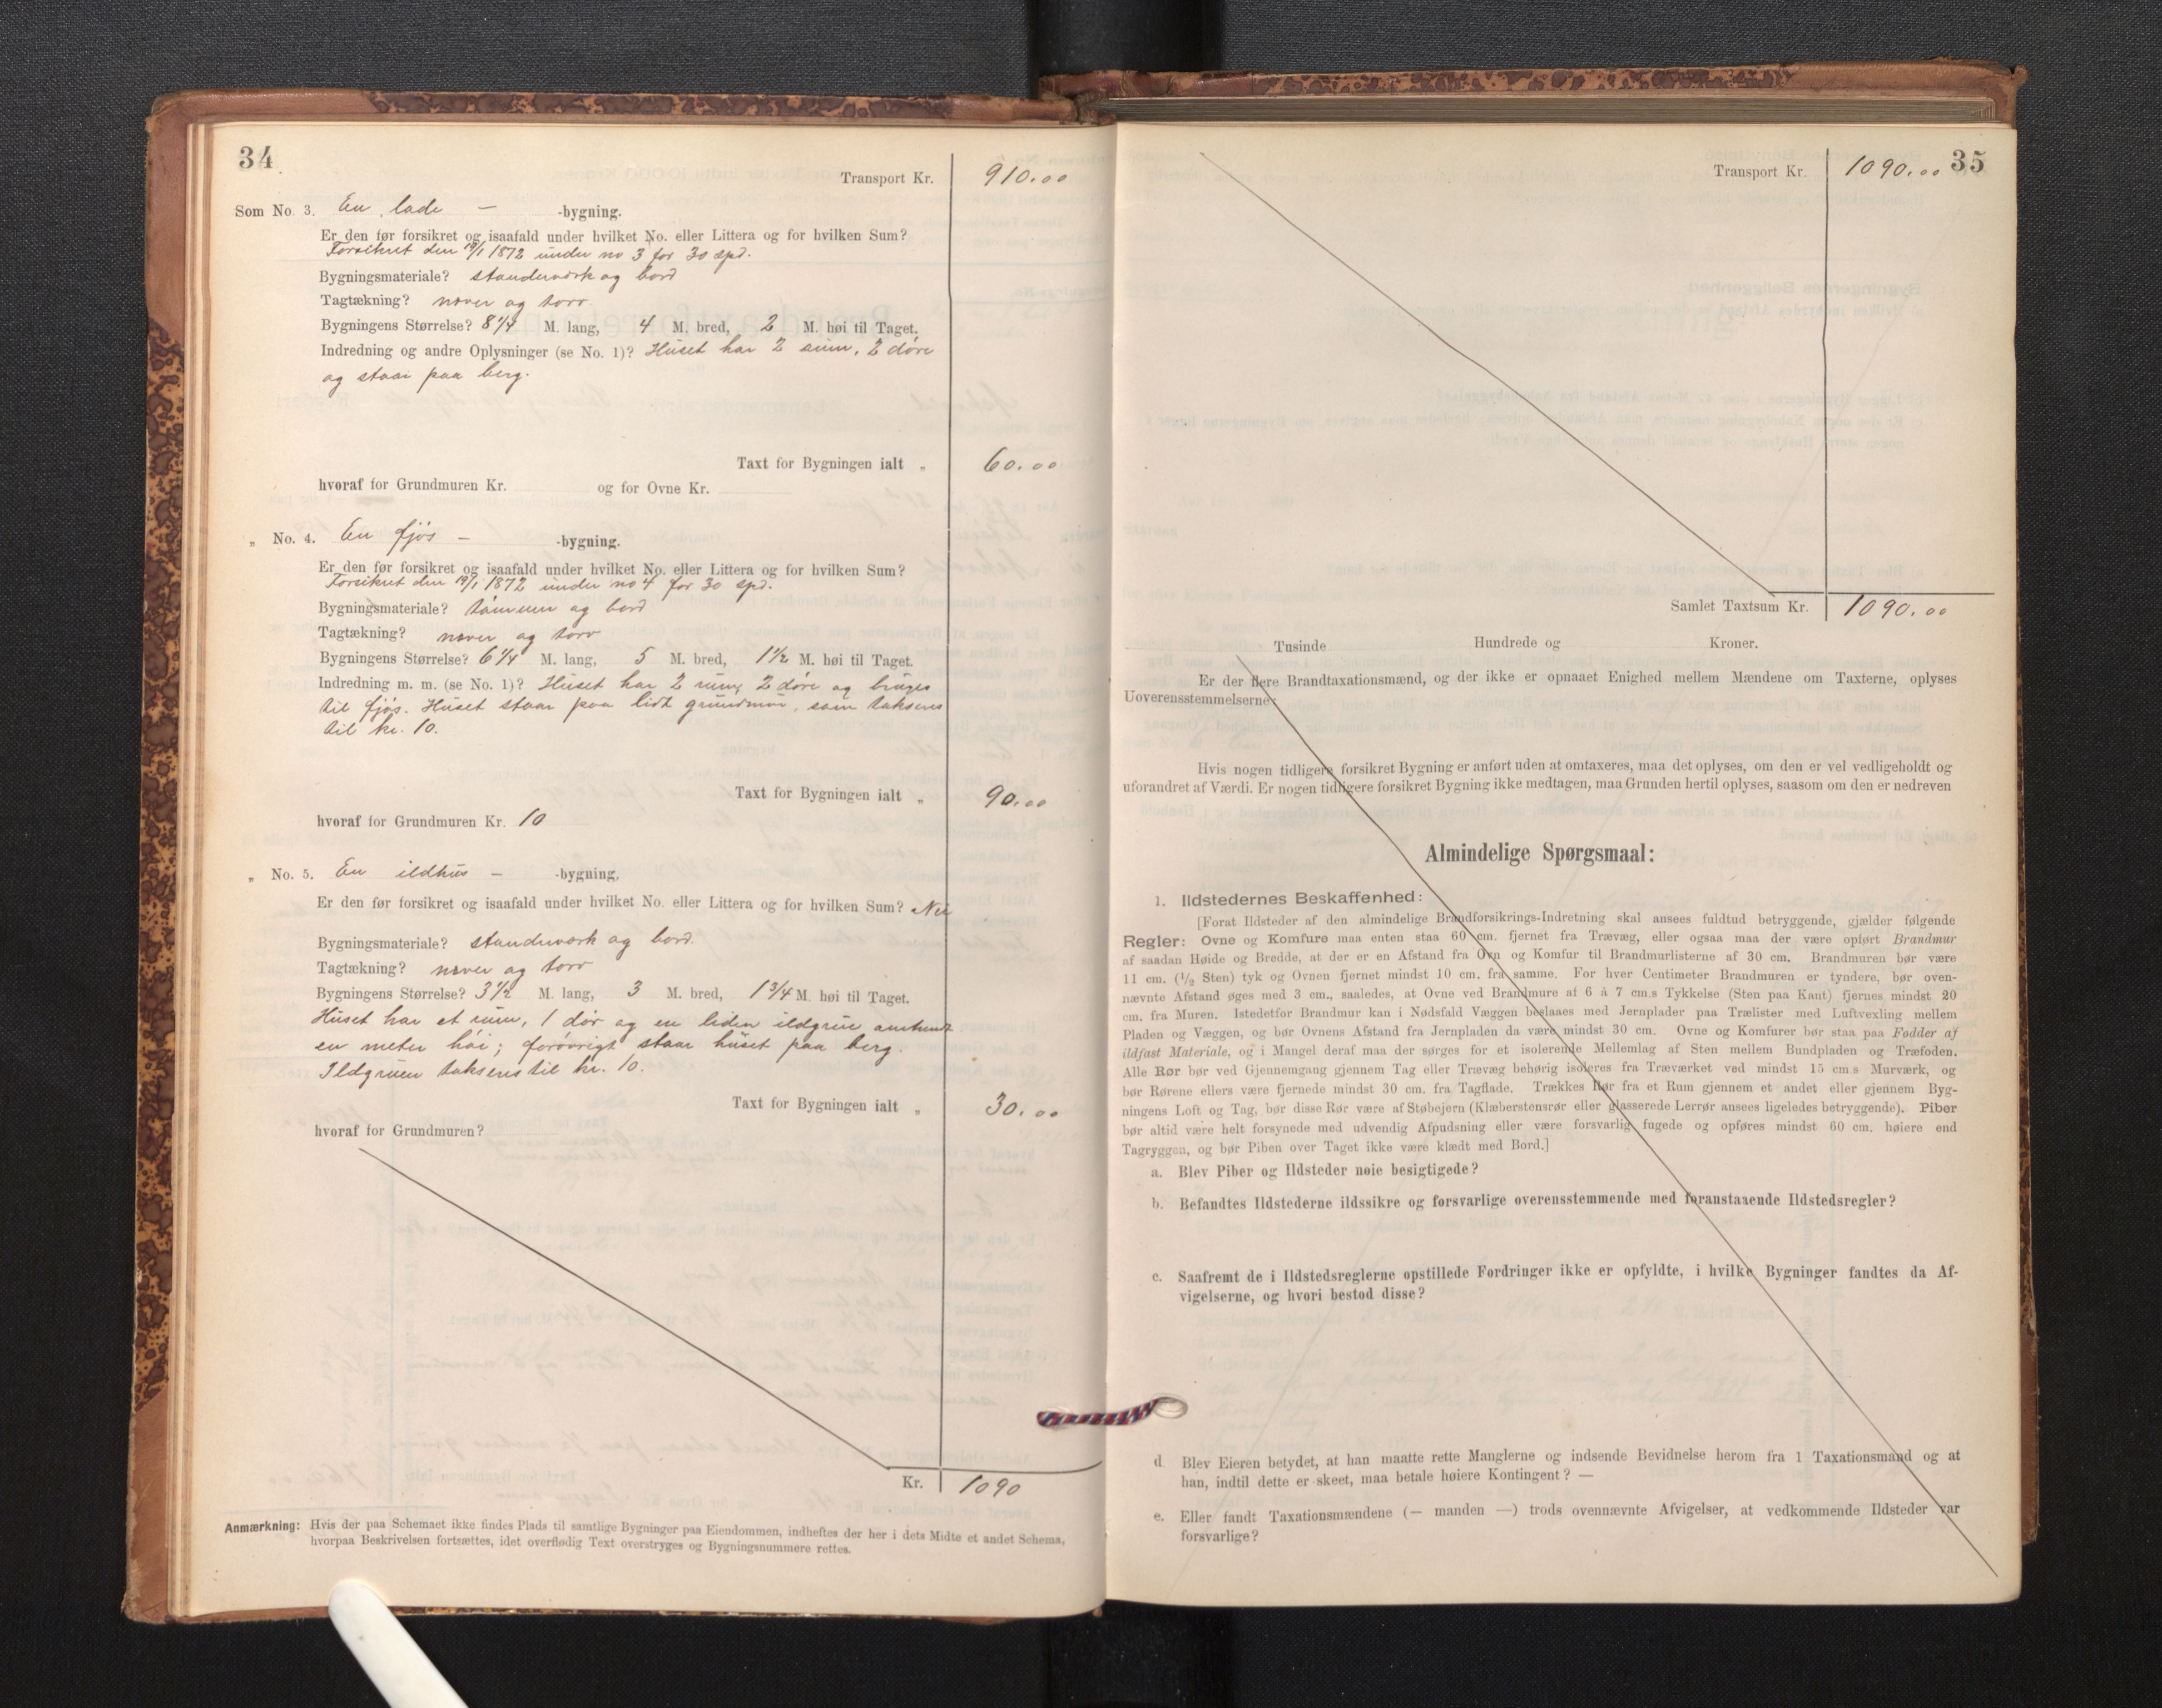 34
Transport Kr. 910.00
Som No. 3. En lade — -bygning.
Er den før forsikret og isaafald under hvilket No. eller Littera og for hvilken Sum?
Forsikret den 19/1 1872 under no 3 for 30 spd.
Bygningsmateriale? standerværk og bord
Tagtækning? never og torv
Bygningens Størrelse? 8 1/4 M. lang, 4 M. bred, 2 M. høi til Taget.
Indredning og andre Oplysninger (se No. 1)? Huset har 2 rum, 2 døre
og staar paa berg.
Taxt for Bygningen ialt „ 60.00
hvoraf for Grundmuren Kr. og for Ovne Kr.
„ No. 4. En fjøs — -bygning.
Er den før forsikret og isaafald under hvilket No. eller Littera og for hvilken Sum?
Forsikret den 19/1 1872 under no 4 for 30 spd.
Bygningsmateriale? tømmer og bord
Tagtækning? never og torv
Bygningens Størrelse? 6 1/4 M. lang, 5 M. bred, 1 1/2 M. høi til Taget.
Indredning m. m. (se No. 1)? Huset har 2 rum, 2 døre og bruges
til fjøs. Huset staar paa lidt grundmur, som takseres
til kr. 10.
Taxt for Bygningen ialt „ 90.00
hvoraf for Grundmuren Kr. 10
„ No. 5. En ildhus — -bygning,
Er den før forsikret og isaafald under hvilket No. eller Littera og for hvilken Sum? Nei
Bygningsmateriale? standerværk og bord.
Tagtækning? never og torv
Bygningens Størrelse? 3 1/2 M. lang, 3 M. bred, 1 3/4 M. høi til Taget.
Huset har et rum, 1 dør og en liden ildgrue omtrent
en meter høi; forøvrigt staar huset paa berg.
Ildgruen takseres til kr. 10.
Taxt for Bygningen ialt „ 30.00
hvoraf for Grundmuren?
Kr. 1090
Anmærkning: Hvis der paa Schemaet ikke findes Plads til samtlige Bygninger paa Eiendommen, indheftes der her i dets Midte et andet Schema,
hvorpaa Beskrivelsen fortsættes, idet overflødig Text overstryges og Bygningsnummere rettes.
35
Transport Kr. 1090.00
Samlet Taxtsum Kr. 1090.00
Tusinde Hundrede og Kroner.
Er der flere Brandtaxationsmænd, og der ikke er opnaaet Enighed mellem Mændene om Taxterne, oplyses
Uoverensstemmelserne:
Hvis nogen tidligere forsikret Bygning er anført uden at omtaxeres, maa det oplyses, om den er vel vedligeholdt og
uforandret af Værdi. Er nogen tidligere forsikret Bygning ikke medtagen, maa Grunden hertil oplyses, saasom om den er nedreven
Almindelige Spørgsmaal:
1. Ildstedernes Beskaffenhed:
[Forat Ildsteder af den almindelige Brandforsikrings-Indretning skal ansees fuldtud betryggende, gjælder følgende
Regler: Ovne og Komfure maa enten staa 60 cm. fjernet fra Trævæg, eller ogsaa maa der være opført Brandmur
af saadan Høide og Bredde, at der er en Afstand fra Ovn og Komfur til Brandmurlisterne af 30 cm. Brandmuren bør være
11 cm. (1/2 Sten) tyk og Ovnen fjernet mindst 10 cm. fra samme. For hver Centimeter Brandmuren er tyndere, bør oven-
nævnte Afstand øges med 3 cm., saaledes, at Ovne ved Brandmure af 6 à 7 cm.s Tykkelse (Sten paa Kant) fjernes mindst 20
cm. fra Muren. Istedetfor Brandmur kan i Nødsfald Væggen beslaaes med Jernplader paa Trælister med Luftvexling mellem
Pladen og Væggen, og bør Ovnens Afstand fra Jernpladen da være mindst 30 cm. Ovne og Komfurer bør staa paa Fødder af
ildfast Materiale, og i Mangel deraf maa der sørges for et isolerende Mellemlag af Sten mellem Bundpladen og Træfoden.
Alle Rør bør ved Gjennemgang gjennem Tag eller Trævæg behørig isoleres fra Træværket ved mindst 15 cm.s Murværk, og
bør Rørene ellers være fjernede mindst 30 cm. fra Tagflade. Trækkes Rør fra et Rum gjennem et andet eller gjennem Byg-
ningens Loft og Tag, bør disse Rør være af Støbejern (Klæberstensrør eller glasserede Lerrør ansees ligeledes betryggende). Piber
bør altid være helt forsynede med udvendig Afpudsning eller være forsvarlig fugede og opføres mindst 60 cm. høiere end
Tagryggen, og bør Piben over Taget ikke være klædt med Bord.]
a. Blev Piber og Ildsteder nøie besigtigede?
b. Befandtes Ildstederne ildssikre og forsvarlige overensstemmende med foranstaaende Ildstedsregler?
c. Saafremt de i Ildstedsreglerne opstillede Fordringer ikke er opfyldte, i hvilke Bygninger fandtes da Af-
vigelserne, og hvori bestod disse?
d. Blev Eieren betydet, at han maatte rette Manglerne og indsende Bevidnelse herom fra 1 Taxationsmand og at
han, indtil dette er skeet, maa betale høiere Kontingent? —
e. Eller fandt Taxationsmændene (— manden —) trods ovennævnte Afvigelser, at vedkommende Ildsteder var
forsvarlige?